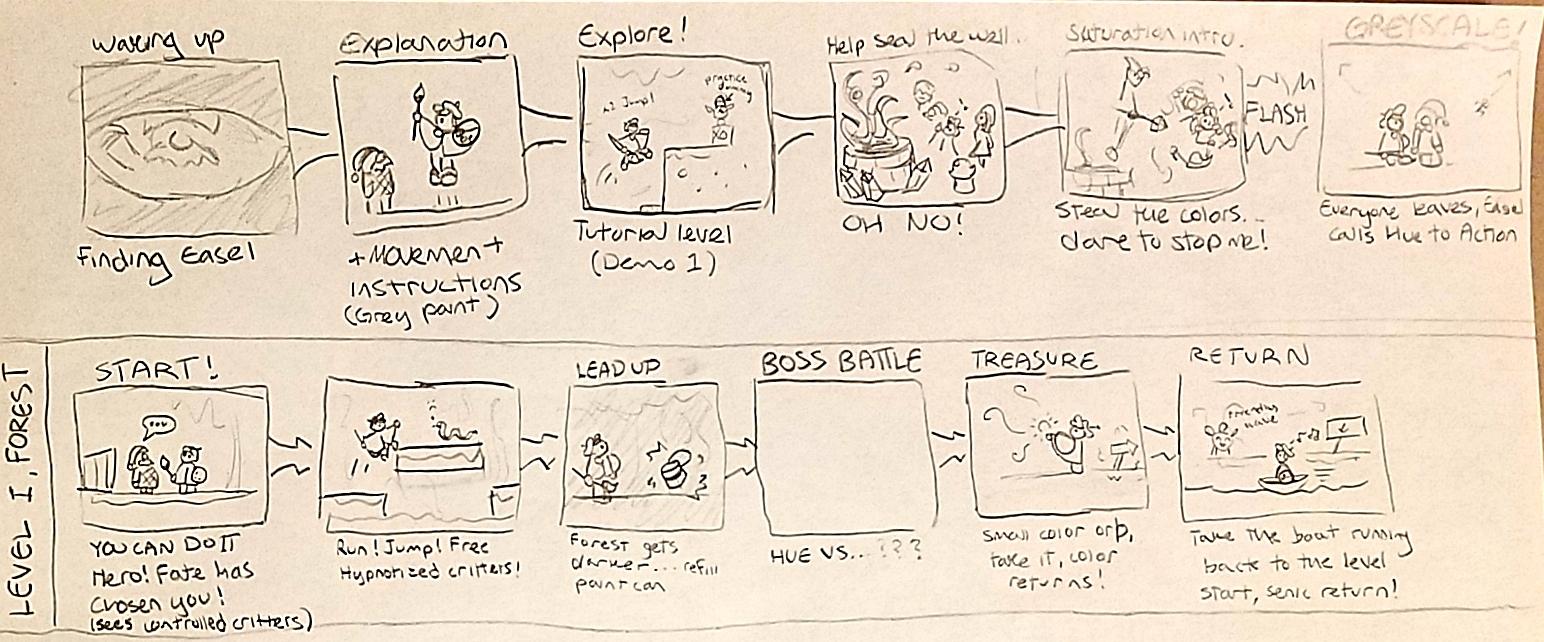 waking up
Finding Easel
Explanation
+Movement+
instructions
(Grey paint)
Explore!
x2 Jump!
practice
dummy
Tutorial level
(Demo 1)
Help seal the well.
OH NO!
Saturation intro.
Steal the colors...
dare to stop me!
FLASH
GREYSCALE!
Everyone leaves, Easel
calls Hue to Action
LEVEL I, FOREST
START!
YOU CAN DO IT
Hero! Fate has
chosen you!
(sees controlled critters)
Run! Jump! Free
Hypnotized critters!
LEAD UP
Forest gets
darker... refill
paint can
BOSS BATTLE
HUE VS...???
TREASURE
Small color orb,
take it, color
returns!
RETURN
friendly
wave
Take the boat running
back to the level
start, senic return!